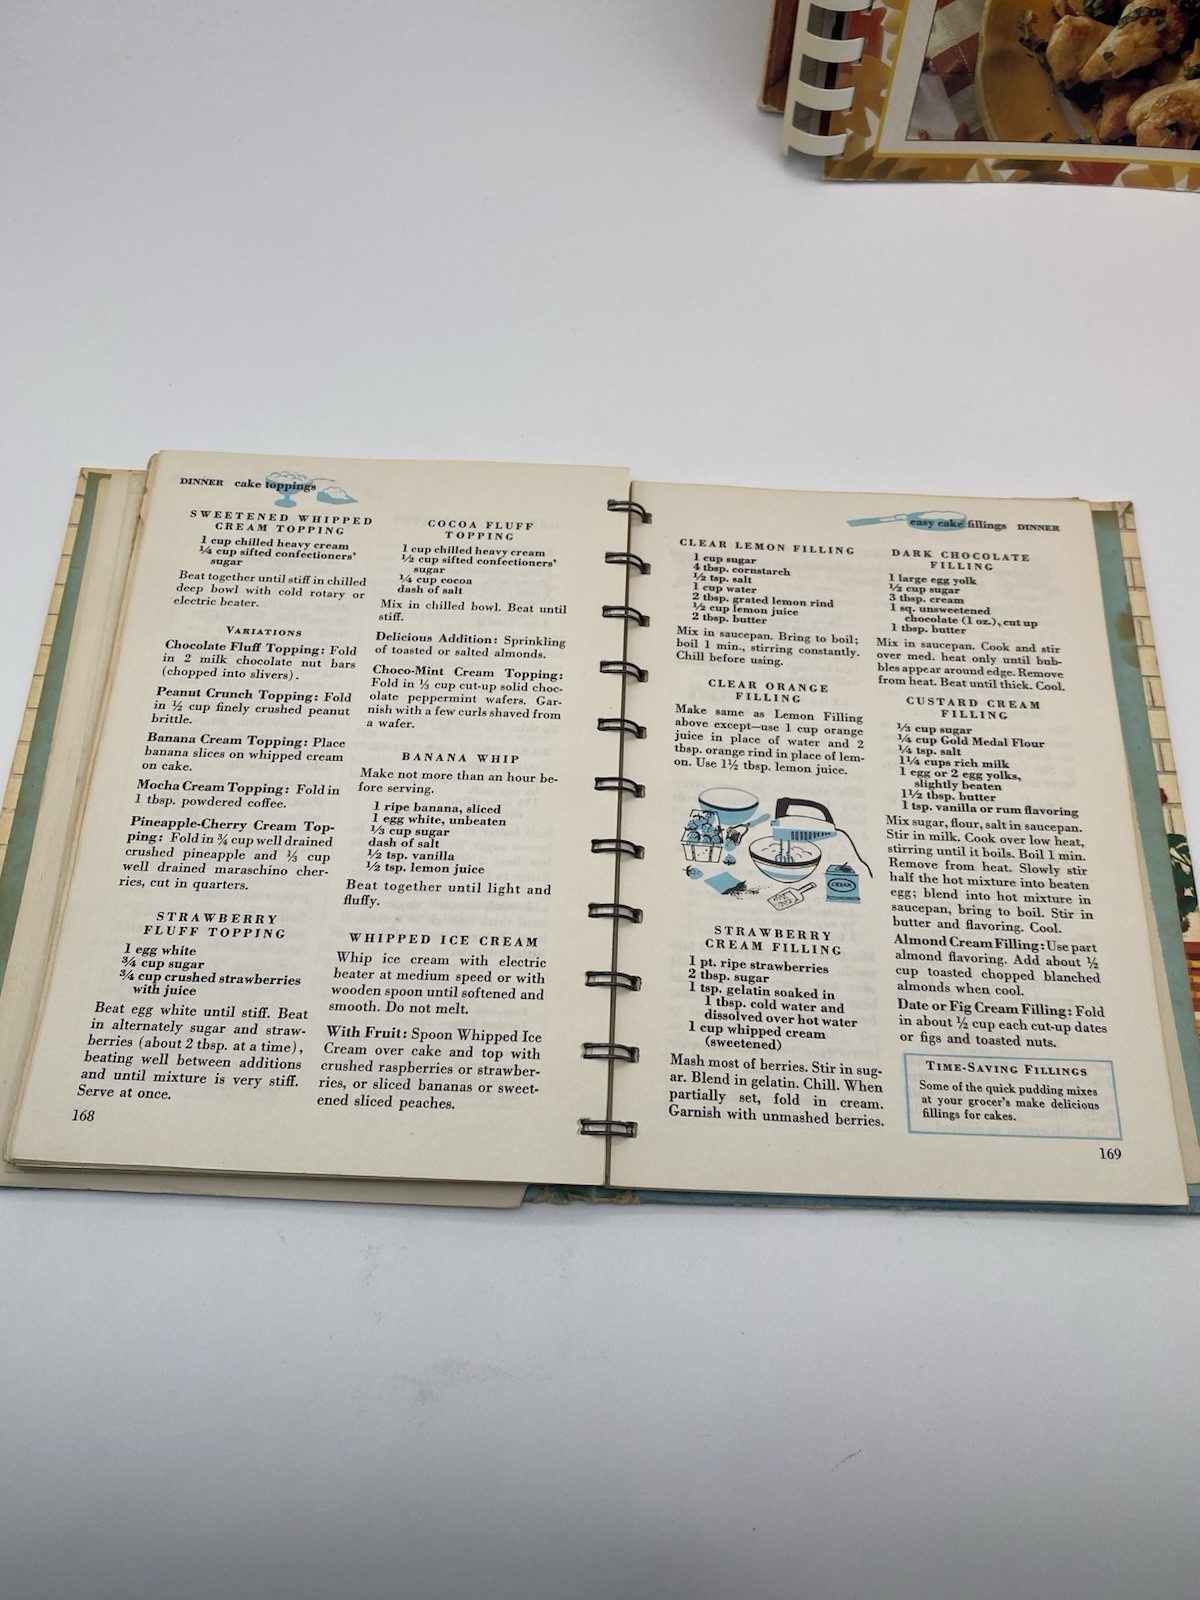 DINNER cake toppings
SWEETENED WHIPPED
CREAM TOPPING
1 cup chilled heavy cream
¼ cup sifted confectioners'
sugar
Beat together until stiff in chilled
deep bowl with cold rotary or
electric beater.
VARIATIONS
Chocolate Fluff Topping: Fold
in 2 milk chocolate nut bars
(chopped into slivers).
Peanut Crunch Topping: Fold
in ½ cup finely crushed peanut
brittle.
Banana Cream Topping: Place
banana slices on whipped cream
on cake.
Mocha Cream Topping: Fold in
1 tbsp. powdered coffee.
Pineapple-Cherry Cream Top-
ping: Fold in ¾ cup well drained
crushed pineapple and ⅓ cup
well drained maraschino cher-
ries, cut in quarters.
STRAWBERRY
FLUFF TOPPING
1 egg white
¾ cup sugar
¾ cup crushed strawberries
with juice
Beat egg white until stiff. Beat
in alternately sugar and straw-
berries (about 2 tbsp. at a time),
beating well between additions
and until mixture is very stiff.
Serve at once.
168
COCOA FLUFF
TOPPING
1 cup chilled heavy cream
½ cup sifted confectioners'
sugar
¼ cup cocoa
dash of salt
Mix in chilled bowl. Beat until
stiff.
Delicious Addition: Sprinkling
of toasted or salted almonds.
Choco-Mint Cream Topping:
Fold in ⅓ cup cut-up solid choc-
olate peppermint wafers. Gar-
nish with a few curls shaved from
a wafer.
BANANA WHIP
Make not more than an hour be-
fore serving.
1 ripe banana, sliced
1 egg white, unbeaten
⅓ cup sugar
dash of salt
½ tsp. vanilla
½ tsp. lemon juice
Beat together until light and
fluffy.
WHIPPED ICE CREAM
Whip ice cream with electric
beater at medium speed or with
wooden spoon until softened and
smooth. Do not melt.
With Fruit: Spoon Whipped Ice
Cream over cake and top with
crushed raspberries or strawber-
ries, or sliced bananas or sweet-
ened sliced peaches.
easy cake fillings DINNER
CLEAR LEMON FILLING
1 cup sugar
4 tbsp. cornstarch
½ tsp. salt
1 cup water
2 tbsp. grated lemon rind
½ cup lemon juice
2 tbsp. butter
Mix in saucepan. Bring to boil;
boil 1 min., stirring constantly.
Chill before using.
CLEAR ORANGE
FILLING
Make same as Lemon Filling
above except—use 1 cup orange
juice in place of water and 2
tbsp. orange rind in place of lem-
on. Use 1½ tbsp. lemon juice.
CREAM
STRAWBERRY
CREAM FILLING
1 pt. ripe strawberries
2 tbsp. sugar
1 tsp. gelatin soaked in
1 tbsp. cold water and
dissolved over hot water
1 cup whipped cream
(sweetened)
Mash most of berries. Stir in sug-
ar. Blend in gelatin. Chill. When
partially set, fold in cream.
Garnish with unmashed berries.
DARK CHOCOLATE
FILLING
1 large egg yolk
½ cup sugar
3 tbsp. cream
1 sq. unsweetened
chocolate (1 oz.), cut up
1 tbsp. butter
Mix in saucepan. Cook and stir
over med. heat only until bub-
bles appear around edge. Remove
from heat. Beat until thick. Cool.
CUSTARD CREAM
FILLING
⅓ cup sugar
¼ cup Gold Medal Flour
¼ tsp. salt
1¼ cups rich milk
1 egg or 2 egg yolks,
slightly beaten
1½ tbsp. butter
1 tsp. vanilla or rum flavoring
Mix sugar, flour, salt in saucepan.
Stir in milk. Cook over low heat,
stirring until it boils. Boil 1 min.
Remove from heat. Slowly stir
half the hot mixture into beaten
egg; blend into hot mixture in
saucepan, bring to boil. Stir in
butter and flavoring. Cool.
Almond Cream Filling: Use part
almond flavoring. Add about ½
cup toasted chopped blanched
almonds when cool.
Date or Fig Cream Filling: Fold
in about ½ cup each cut-up dates
or figs and toasted nuts.
TIME-SAVING FILLINGS
Some of the quick pudding mixes
at your grocer's make delicious
fillings for cakes.
169